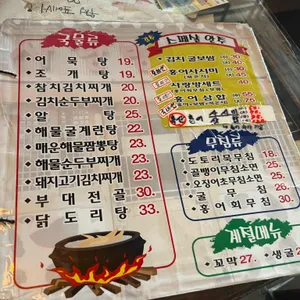 국물류
어묵탕 19.
조개탕 19.
참치김치찌개 20.
김치순두부찌개 20.
알탕 25.
해물굴계란탕 22.
매운해물짬뽕탕 23.
해물순두부찌개 23.
돼지고기김치찌개 23.
부대전골 30.
닭도리탕 33.
스페샬 안주
김치굴보쌈
홍어사시미
사랑방세트
홍어삼합
무침류
도토리묵무침 18.
골뱅이무침소면 25.
오징어초무침소면 25.
굴무침 26.
홍어회무침 30.
계절메뉴
꼬막 27.
생굴